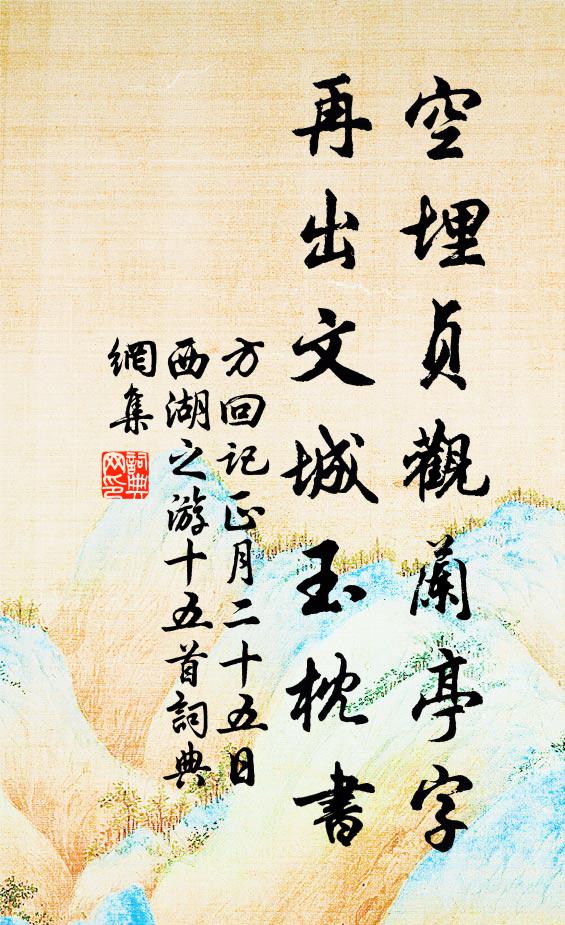 空埋貞觀蘭亭字
再出文城玉枕書
方回记正月二十五日
西湖之游十五首詞典
網集
詞典網印